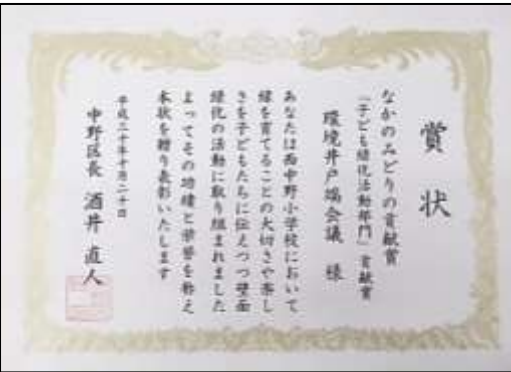 賞状
なかのみどりの貢献賞
「子ども緑化活動部門」貢献賞
環境井戸端会議 様
あなたは西中野小学校において
緑を育てることの大切さや楽し
さを子どもたちに伝えつつ壁面
緑化の活動に取り組まれました
よってその功績と栄誉を称え
本状を贈り表彰いたします
平成三十年十月二十日
中野区長 酒井 直人